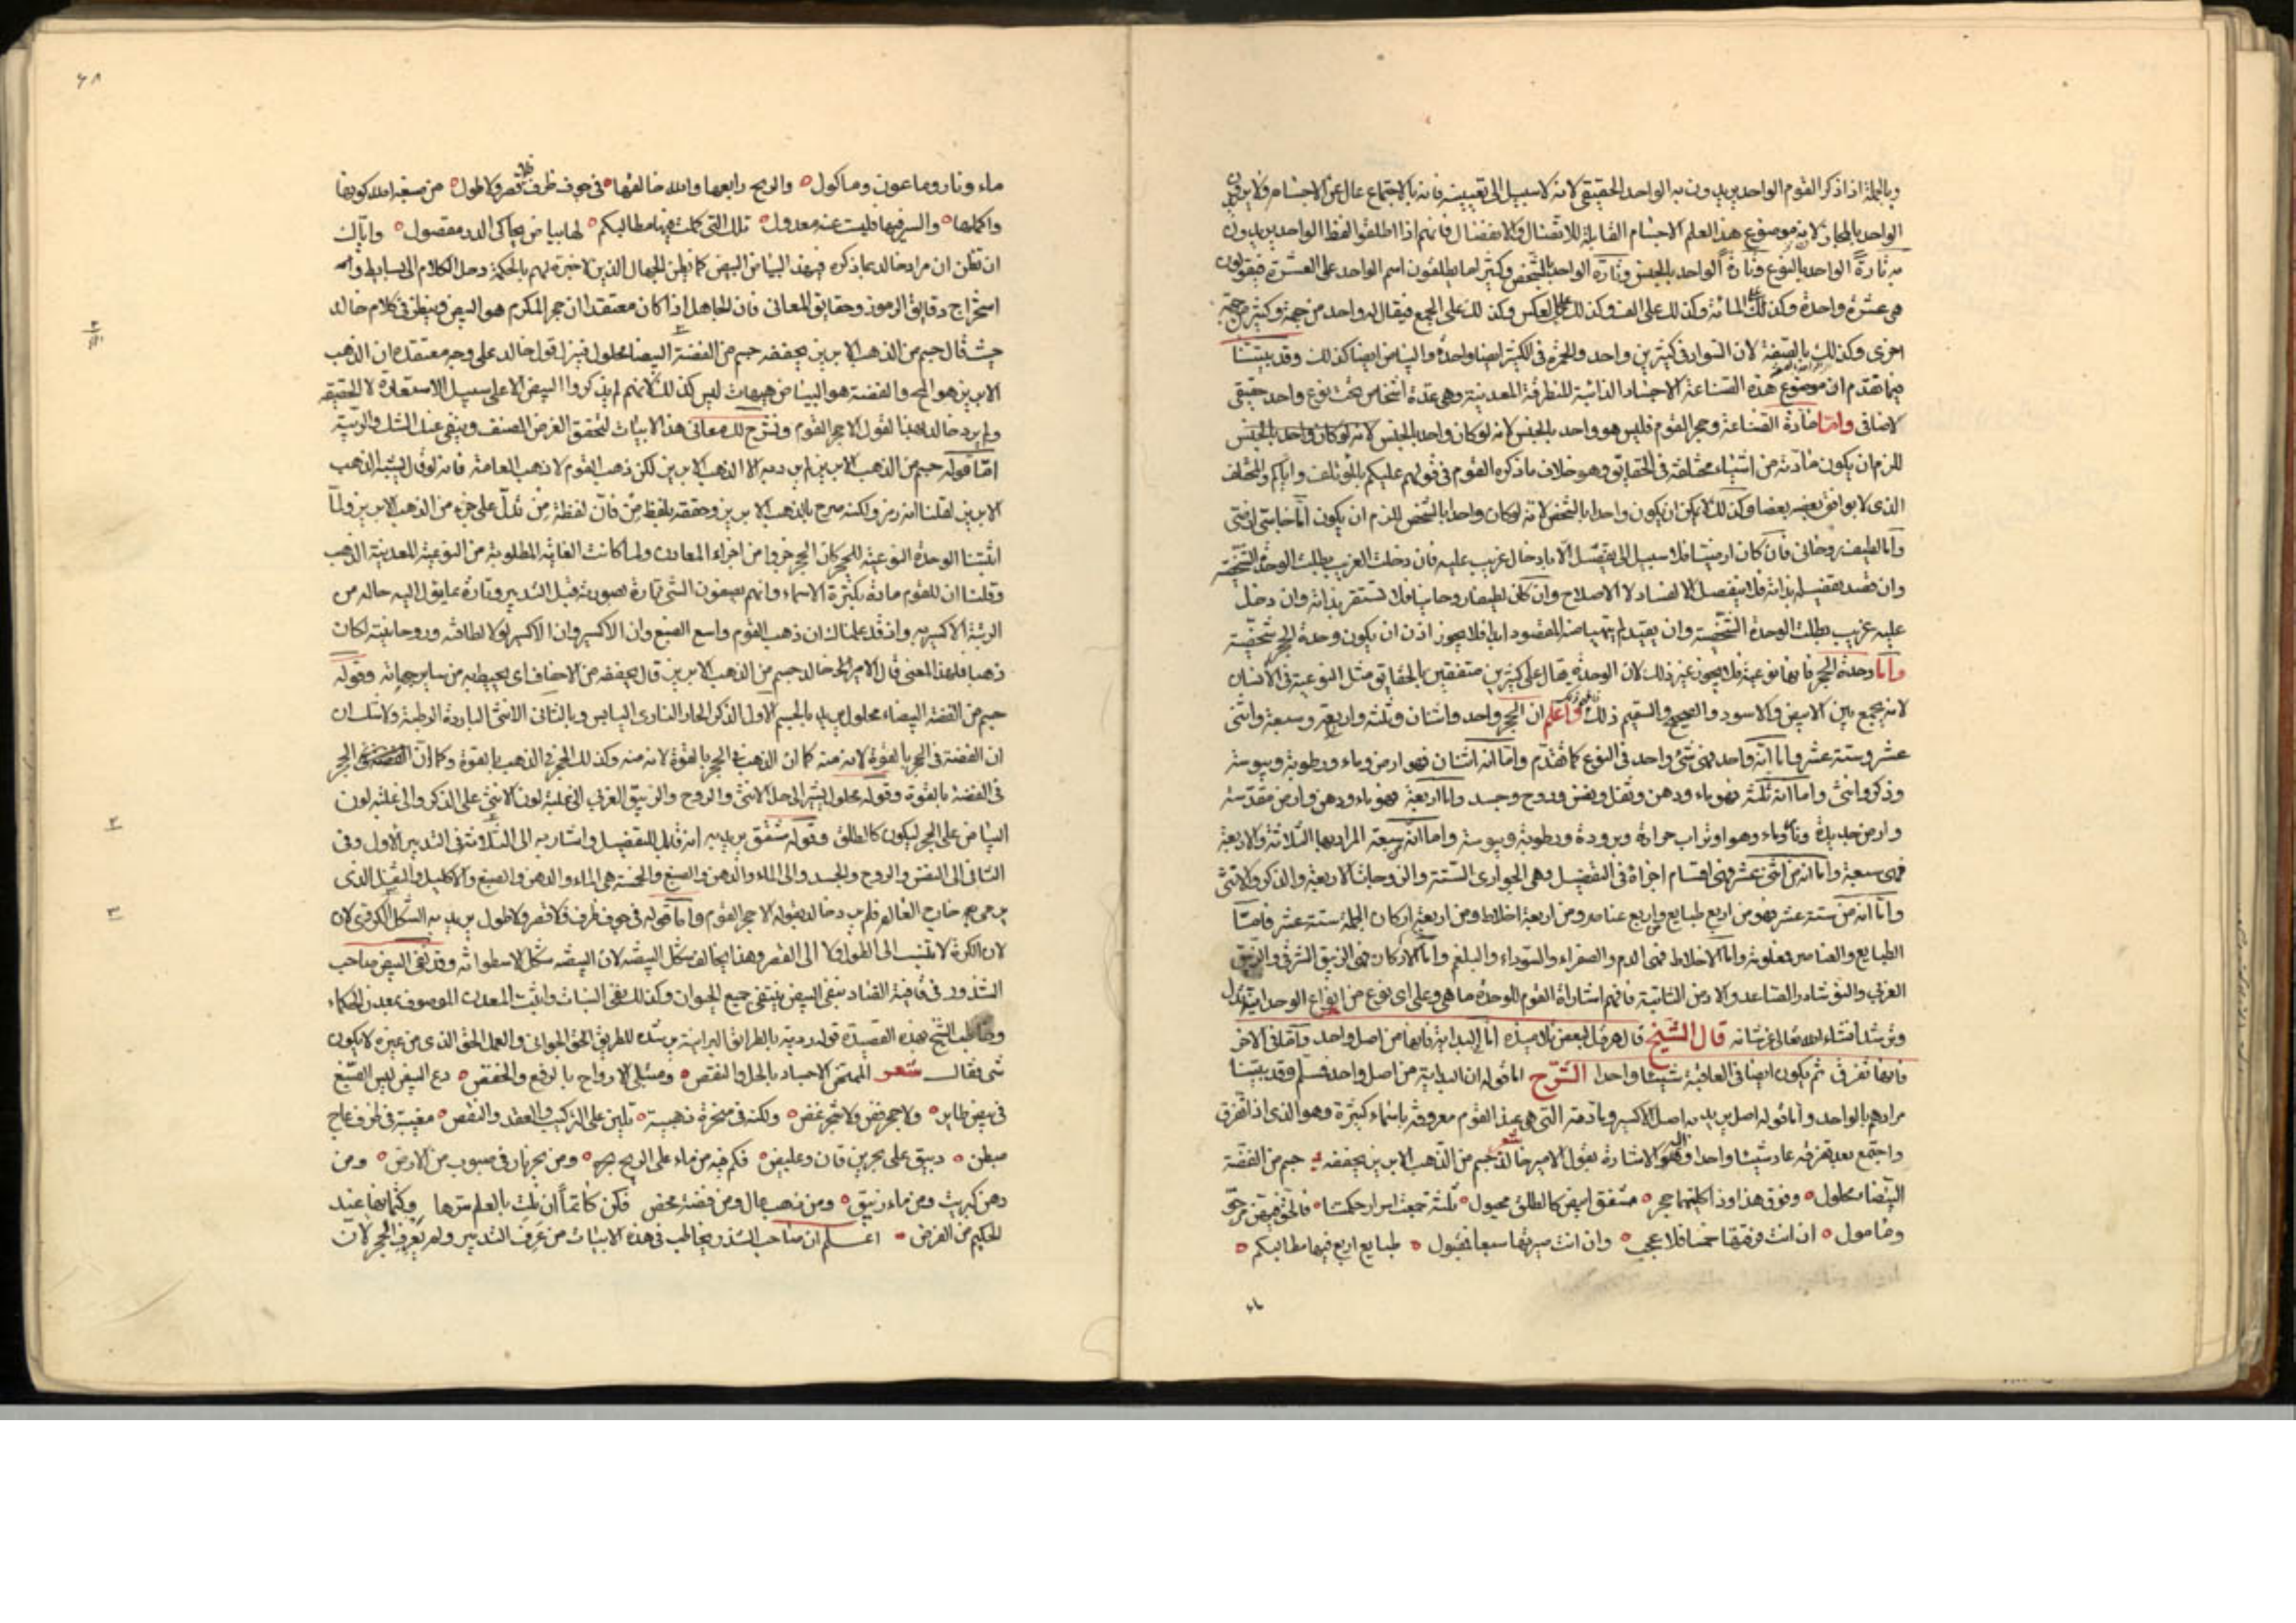 وبالجملة اذا ذكر القوم الواحد يريدون به الواحد الحقيقى لانه لا سبيل الى تعيينه فانه بالاجتماع عال عن الاجسام ولا يريدون
الواحد بالمجاز لانه موضوع هذا العلم الاجسام القابلة للاتصال والانفصال فانهم اذا اطلقوا لفظ الواحد يريدون
به تارةً الواحد بالنوع وتارةً الواحد بالجنس وتارة الواحد بالشخص وكثيرا ما يطلقون اسم الواحد على العشرة فيقولون
هى عشرة واحدة وكذلك المائة وكذلك على الف وكذلك على العكس وكذلك على الجمع فيقال له واحد من جهة وكثير من جهة
اخرى وكذلك بالصفة لان السواد فى كثيرين واحد والحمرة فى الكثير ايضا واحدة والبياض ايضا كذلك وقد بيننا
فيما تقدم ان موضوع هذه الصناعة الاجساد الذائبة المنطرقة المعدنية وهى عدة اشخاص تحت نوع واحد حقيقى
لا ضافى واما مادة الصناعة وحجر القوم فليس هو واحد بالجنس لانه لو كان واحد بالجنس لانه لو كان واحد بالجنس
للزم ان يكون مادته من اشياء مختلفة فى الحقايق وهو خلاف ما ذكره القوم فى قولهم عليكم بالمؤتلف واياكم والمختلف
الذى لا يوافق بعضه بعضا وكذلك لا يمكن ان يكون واحدا بالشخص لانه لو كان واحدا بالشخص للزم ان يكون اما
واما لطيف روحانى فان كان ارضيا فلا سبيل الى تفصيله الا بادخال غريب عليه فان دخلت الغريب بطلت الوحدة الشخصية
وان قصد تفصيله بذاته فلا ينفصل الا لفساد لا لاصلاح وان كان لطيفا روحانيا فلا تستقر بذاته وان دخل
عليه غريب بطلت الوحدة الشخصية وان يقيد لم يتهيا منه المقصود ابدا فلا يجوز اذن ان يكون وحدة الحجر شخصية
واما وحدة الحجر فانها نوعية فلا يجوز غير ذلك لان الوحدة يقال على كثيرين متفقين بالحقايق مثل النوعية فى الانسان
لانه يجمع بين الابيض والاسود والصحيح والسقيم ذلك واعلم ان الحجر واحد واثنان وثلثة واربعة وسبعة واثنى
عشر وستة عشر واما انه واحد فهى شئ واحد فى النوع كما تقدم واما انه اثنان فهو ارض وماء ورطوبة ويبوسة
وذكر وانثى واما انه ثلثة فهو ماء ودهن وثفل ونفس وروح وجسد واما اربعة فهو ماء ودهن وارض مقدسة
وارض جديدة ونار وماء وهوا وتراب حرارة وبرودة ورطوبة ويبوسة واما انه سبعة المراد بها الثلاثة والاربعة
فهى سبعة واما انه من اثنى عشر فهى اقسام اجزاة فى التفصيل وهى الجوارى الستة والزوجات الاربعة والذكر والانثى
واما انه من ستة عشر فهو من اربع طبايع واربع عناصر ومن اربعة اخلاط ومن اربعة اركان الجملة ستة عشر فامّا
الطبايع والعناصر فمعلومة واما الاخلاط فهى الدم والصفراء والسوداء والبلغم واما الاركان فهى الزيبق الشرقى والزيبق
الغربى والنوشادر الصاعد والارض الثابتة فافهم اشاراة القوم للوحدة ما هى وعلى اى نوع من انواع الوحدانية تدل
وترشد انشاء الله تعالى عز شانه قال الشيخ قال هرقل لبعض تلاميذه اما البداية فانها من اصل واحد وامّا فى الاخر
فانها تفرق ثم يكون ايضا فى العاقبة شيئا واحدا الشرح اما قوله ان البداية من اصل واحد فسلم وقد بيننا
مرادهم بالواحد واما قوله اصل يريد به اصل الاكسير ومادته التى هى عند القوم معروفة باسماء كثيرة وهو الذى اذا تفرق
واجتمع بعد تفرقه عاد شيئا واحدا واليه الاشارة بقول الامير خالد شعر جسم من الذهب الابريز يحففه جسم من الفضة
البيضاء محلول وفوق هذا وذا كلتهما حجر مشقق ابيض كالطلق محمول ثلثة جمعت اسرار حكمتنا فالحق
ومامول ان انت وفقتها خمسا فلا عجب وان انت صيرتها سبعا فقبول طبايع اربع فيها مطالبكم
٦٨
ماء ونار وماعون وماكول والريح رابعها والله خالقها فى جوف ظرف فلا قصر ولا طول من صبغة الله كونها
واكملها والسر فيها فليست عنه معدول تلك التى كملت فيها مطالبكم لها بياض يحاكى الدر مفصول واياك
ان تظن ان مراد خالد بما ذكره فى هذا البياض البيض كما تظن الجهال الذين لا خبرة لهم بالحكمة وحل الكلام الى بسايط
استخراج دقايق الرموز وحقايق المعانى فان الجاهل اذا كان معتقدا ان حجر المكرم هو البيض وينظر فى كلام خالد
حيث قال جسم من الذهب الابريز يحففه جسم من الفضة البيضا محلول فينزل قول خالد على وجه معتقده ان الذهب
الابريز هو المح والفضة هو البياض هيهات ليس كذلك لانهم لم يذكروا البيض الا على سبيل الاستعارة لا الحقيقة
ولم يرد خالد بهذا القول الا حجر القوم ونشرح لك معانى هذا الابيات لتحقق الغرض المصنف وينفى عنك الشك والريبة
امّا قوله جسم من الذهب الابريز لم يرد به الا الذهب الابريز لكن ذهب القوم لا ذهب العامة فانه لو قال يشبه الذهب
الابريز لقلنا انه رمز ولكنه صرح بالذهب الابريز وحققه بلفظ من فان لفظة من تدل على جزء من الذهب الابريز ولما
اثبتنا الوحدة النوعية للحجر كان الحجر جزوا من اجزاء المعادن ولما كانت الغاية المطلوبة من النوعية المعدنية الذهب
وقلنا ان للقوم مادة بكثرة الاسماء وانهم يصفون الشئ تارة بصورته قبل التدبير وتارة بما يؤل اليه حاله من
الرتبة الاكسيرية واذ قد علمناك ان ذهب القوم واسع الصبغ وان الاكسير وان الاكسير لولا لطافته وروحانيته لكان
ذهبا فلهذا المعنى قال الامير خالد جسم من الذهب الابريز قال يحففه من الاحفاف اى يحيط به من ساير جهاته وقوله
جسم من الفضة البيضاء محلول يريد بالجسم الاول الذكر الحار النارى اليابس وبالثانى الانثى الباردة الرطبة ولا شك ان
ان الفضة فى الحجر بالقوة لانه منه كما ان الذهب فى الحجر بالقوة لانه منه وكذلك الحجر فى الذهب بالقوة وكما ان الحجر
فى الفضة بالقوة وقوله محلول يشير الى حل الانثى والروح والزيبق الغربى الى غلبة لون الانثى على الذكر والى غلبة لون
البياض على الحجر ليكون كالطلق وقوله مشقق يريد به انه قابل للتفصيل واشار به الى الثلاثة فى التدبير الاول وفى
الثانى الى النفس والروح والجسد والى الماء والدهن والصبغ والخمسة هى الماء والدهن والصبغ والاكليل والثفل الذى
خارج العالم فلم يرد خالد بقوله الا حجر القوم واما قوله فى جوف ظرف فلا قصر ولا طول يريد به الشكل الكروى لان
لان الكرة لا تنسب الى الطول ولا الى القصر وهذا يخالف شكل البيضة لان البيضة شكل لاسطوانة وقد نفى البيض صاحب
الشذور فى قافية الضاد فنفى البيض ينتفى جميع الحيوان وكذلك نفى النبات واثبت المعدن الموصوف بمعدن الحكماء
وخاطب الشيخ بهذه القصيدة قوله بالطرايق البرانية للطريق الحق الجوانى والعمل الحق الذى من غيره لا يكون
شئ فقال شعر الاجساد بالحل والنقض ومسبل الارواح بالرفع والخفض دع البيض ليس الصبغ
فى بيض طاير ولا حجر ولا شجر غض ولكنه فى صخرة ذهبية تلين على التركيب والعقد والنقض مغيبة فى ظرف عاج
مبطن على بحرين فكم فيه من ماء على الريح ومن بحر نار فى صبوب من الارض ومن
دهن كبريت ومن ماء زيبق ومن ذهب عال ومن فضة محض فكن كاتما ان نلت بالعلم سرها وكتمانها عند
الحكيم من الفرض اعلم ان صاحب الشذور يخاطب فى هذه الابيات من عرف التدبير ولم يعرف الحجر لان